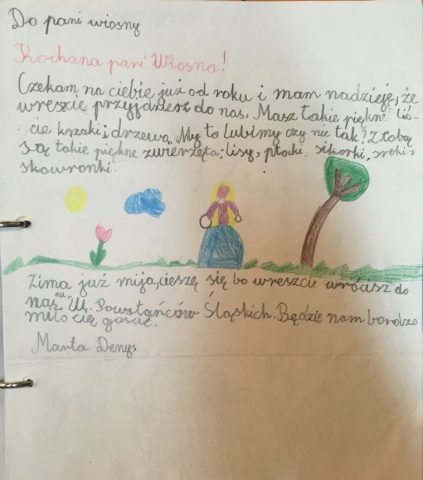 Do pani wiosny
Kochana pani Wiosna!
Czekam na ciebie już od roku i mam nadzieję, że
wreszcie przyjdziesz do nas. Masz takie piękne liś-
cie krzaki i drzewa. My to lubimy czy nie tak? Z tobą
są takie piękne zwierzęta: lisy, ptaki sikorki, sroki i
skowronki.
Zima już mija, cieszę się bo wreszcie wrócisz do
nas na Ul. Powstańców Śląskich. Będzie nam bardzo
miło cię gościć.
Marta Denys